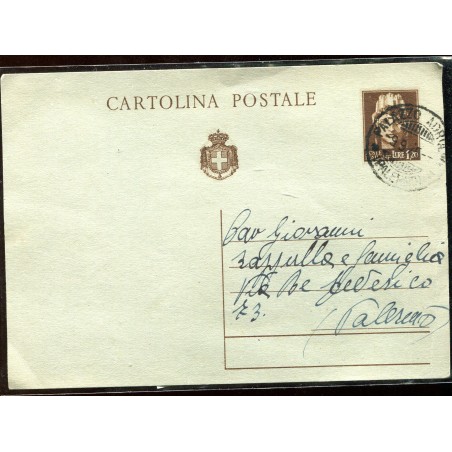 CARTOLINA POSTALE
LIRE 1,20
PALAZZO ADRIANO
Cav Giovanni
Zappulla e famiglia
Via Re Federico
73.
(Palermo)